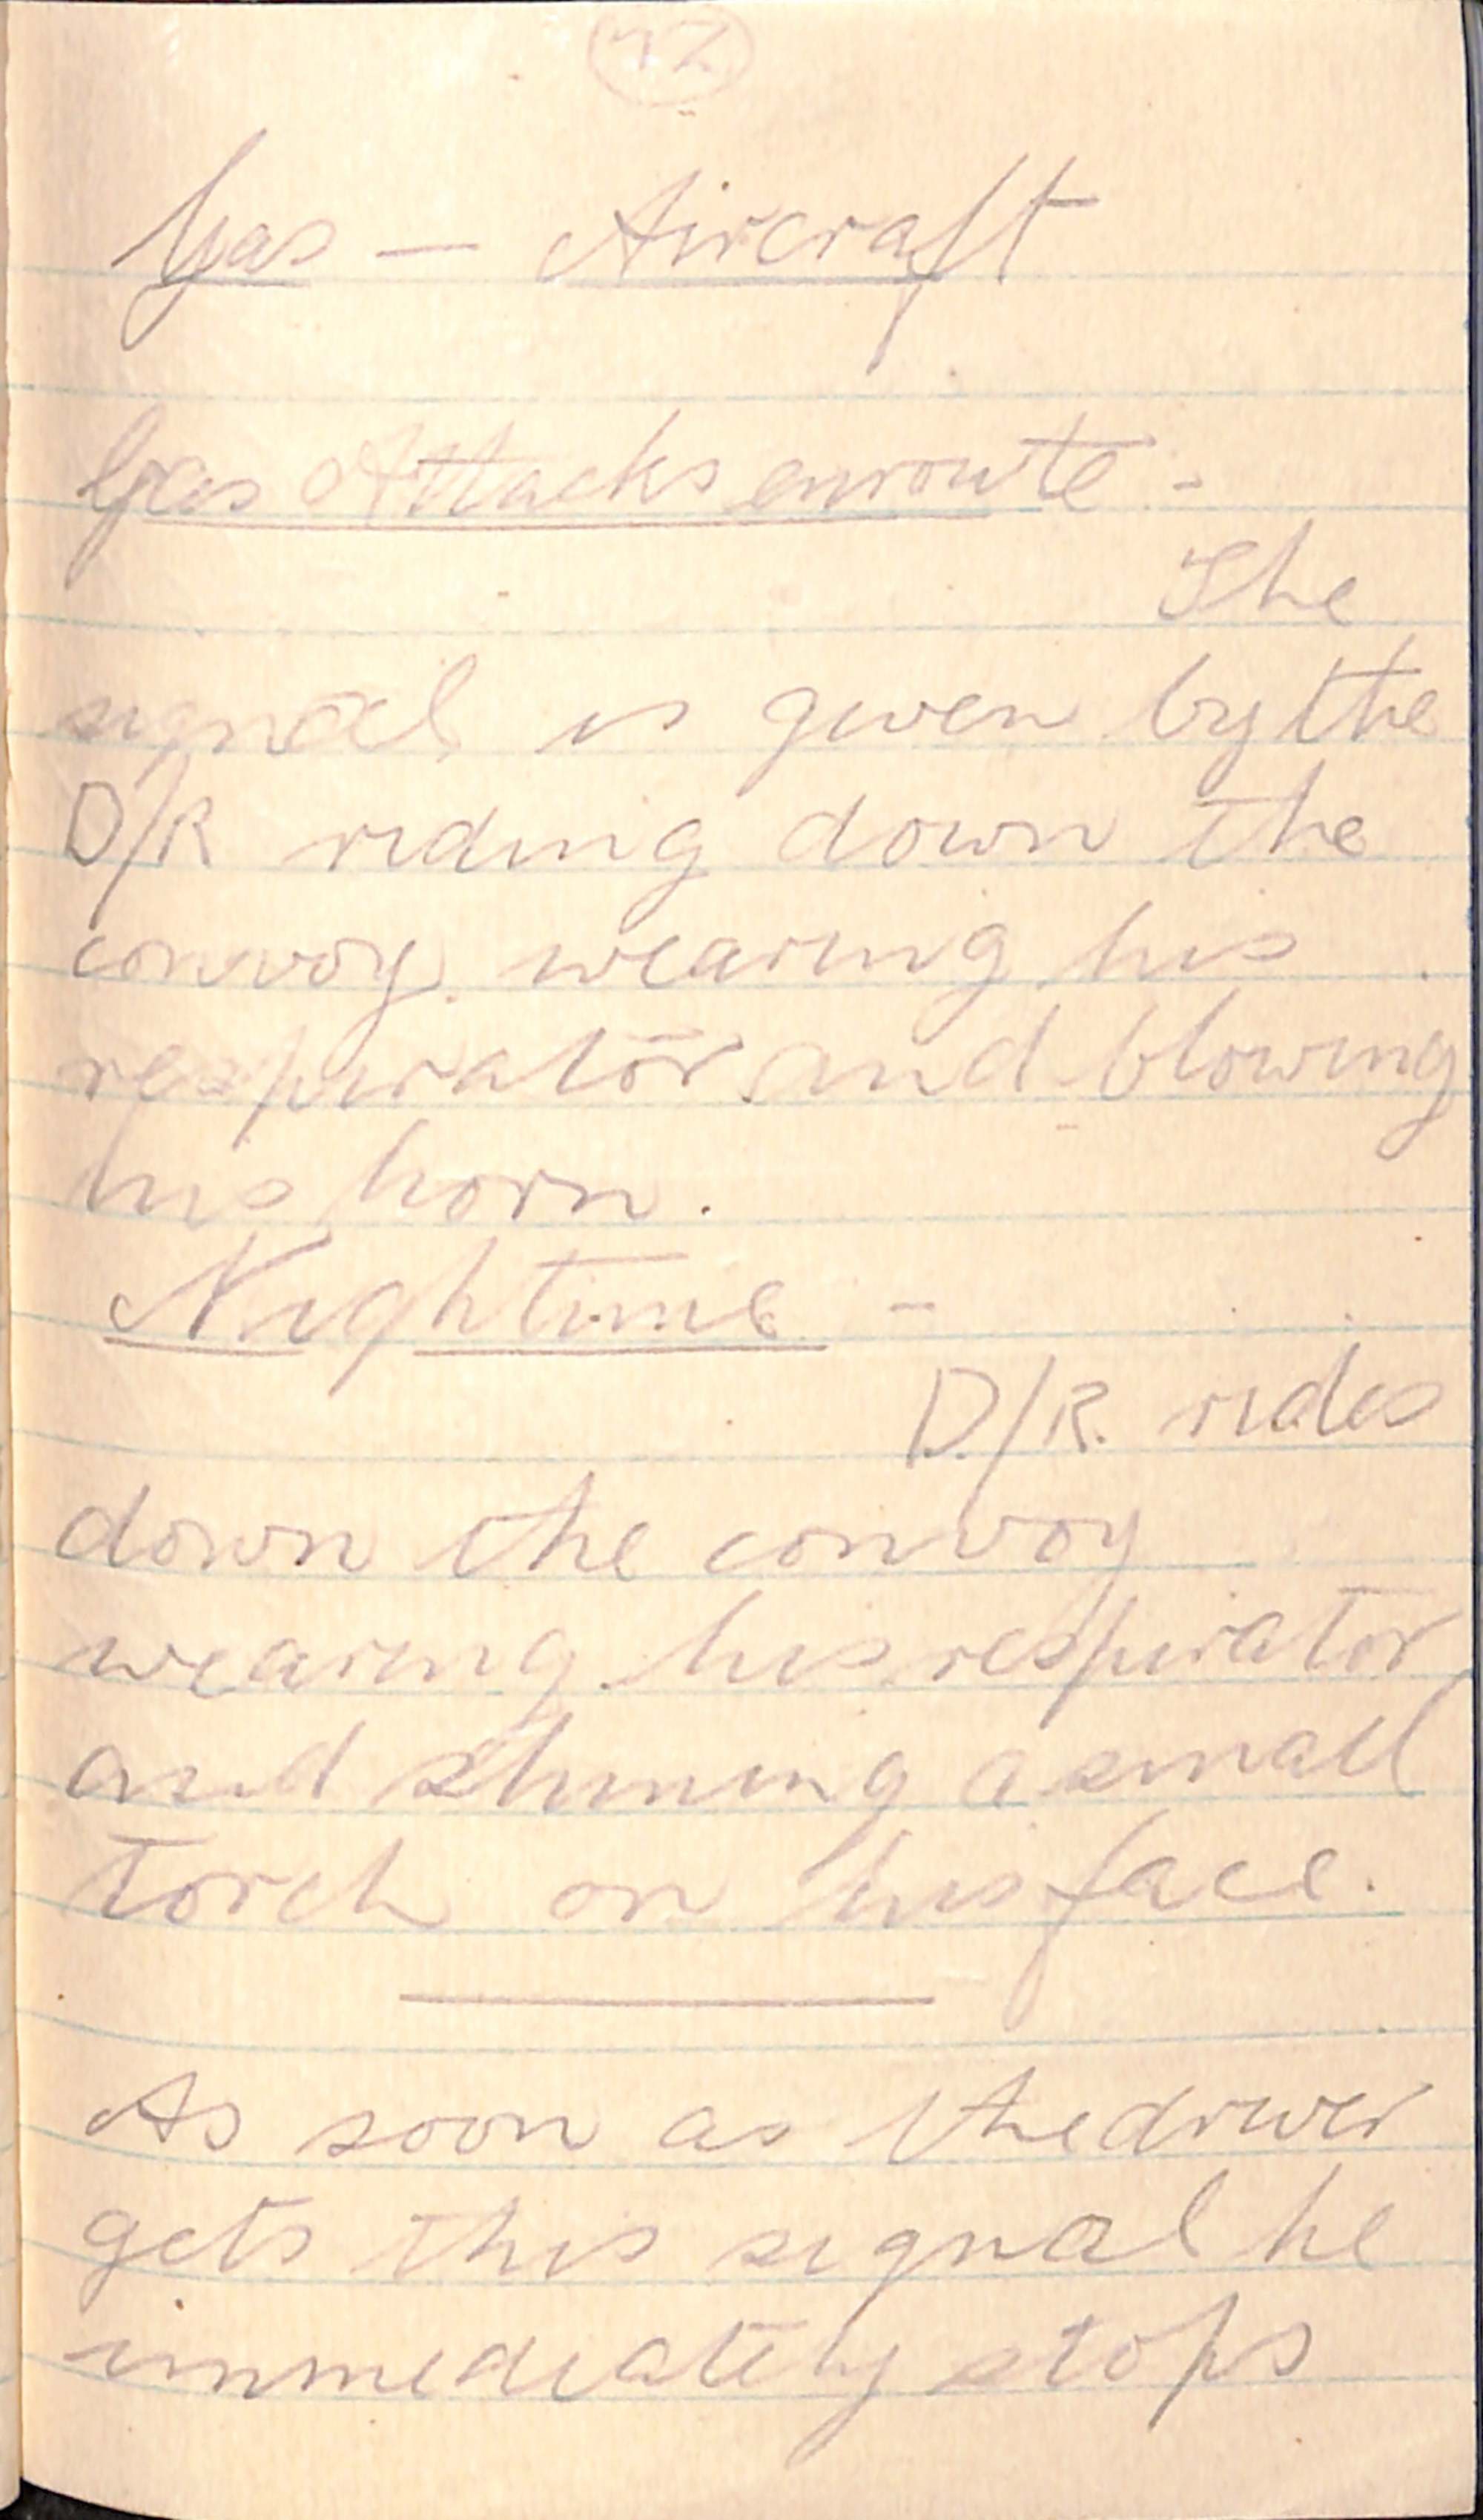 42
Gas — Aircraft
Gas Attacks enroute -
The
signal is given by the
D/R riding down the
convoy wearing his
respirator and blowing
his horn.
Nightime -
D/R. rides
down the convoy
wearing his respirator
and shining a small
torch on his face.
As soon as the driver
gets this signal he
immediately stops